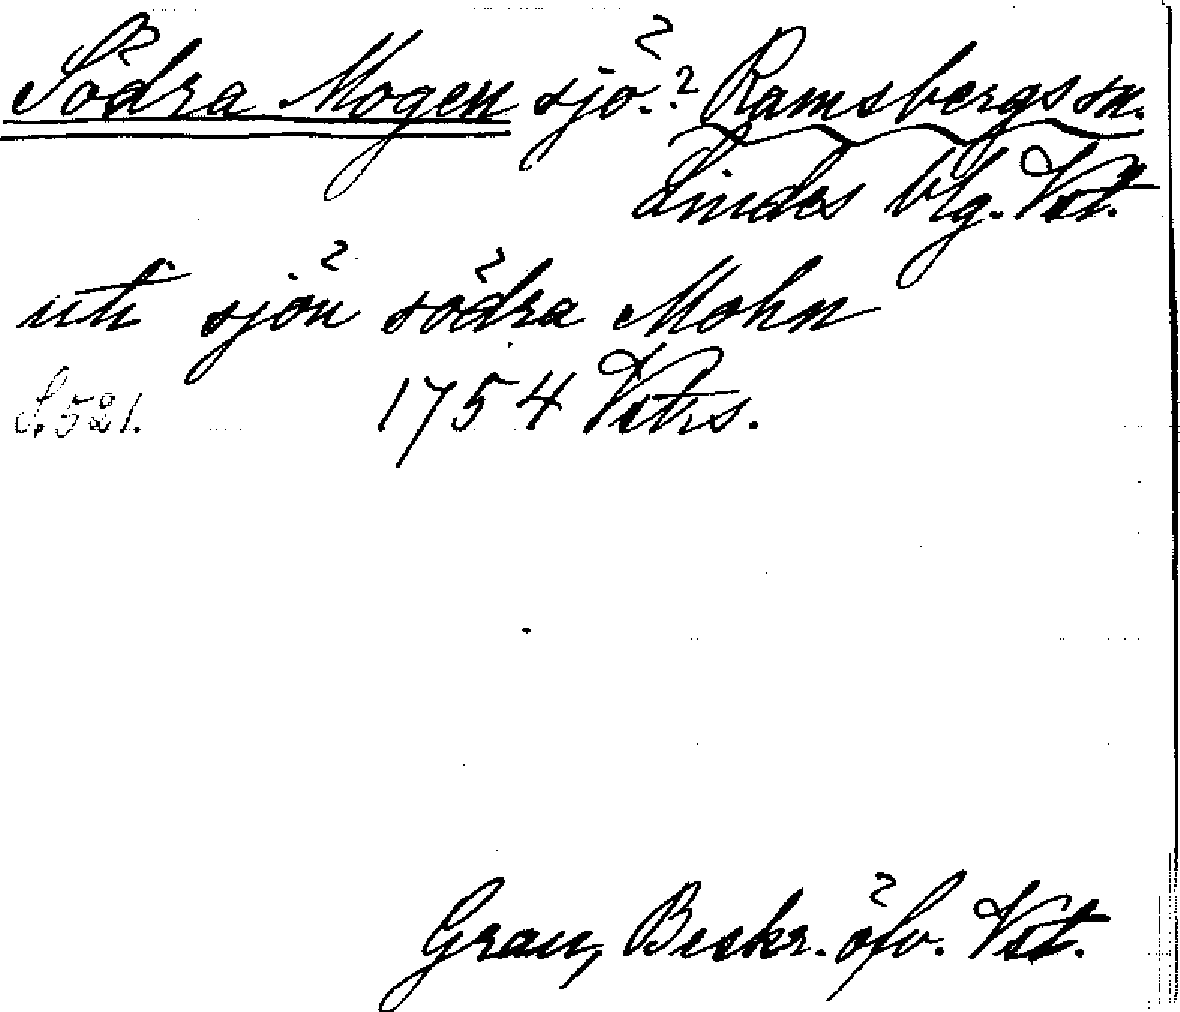 Södra Mogen sjö.? Ramsbergs sn.
Lindes blg. Vst.
uti sjön södra Mohn
S. 521. 1754 Vstrs.
Grau, Beskr. öfv. Vst.